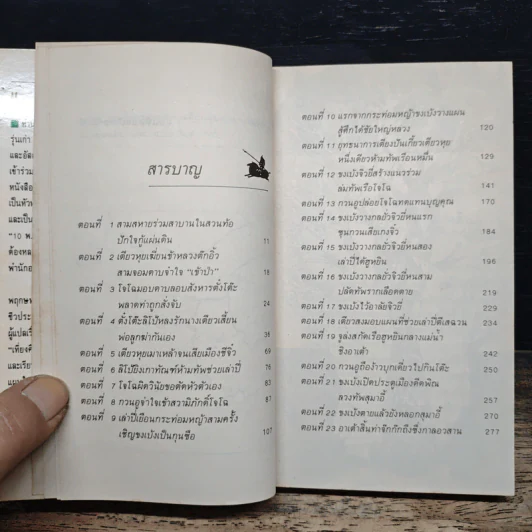 รุ่นเก่า
และอัล
เข้าร่วม
หนังสือ
เป็นหัว
และเป็น
"10 พ.
ต้องหล
พำนักอ
พฤกษ
ชิวประ
ผู้แปลเรื
"เที่ยงคื
และเรีย
แผนที่
สารบาญ
ตอนที่ 1 สามสหายร่วมสาบานในสวนท้อ
ปักใจกู้แผ่นดิน 11
ตอนที่ 2 เตียวหุยเฆี่ยนข้าหลวงตึกอิ้ว
สามจอมดาบจำใจ "เข้าป่า" 18
ตอนที่ 3 โจโฉมอบดาบลอบสังหารตั๋งโต๊ะ
พลาดท่าถูกสั่งจับ 24
ตอนที่ 4 ตั๋งโต๊ะลิโป้หลงรักนางเตียวเสี้ยน
พ่อลูกฆ่ากันเอง 36
ตอนที่ 5 เตียวหุยเมาเหล้าจนเสียเมืองชีจิ๋ว 69
ตอนที่ 6 ลิโป้ยิงเกาทัณฑ์ห้ามทัพช่วยเล่าปี่ 76
ตอนที่ 7 โจโฉผิดวินัยขอตัดหัวตัวเอง 83
ตอนที่ 8 กวนอูจำใจเข้าสวามิภักดิ์โจโฉ 87
ตอนที่ 9 เล่าปี่เยือนกระท่อมหญ้าสามครั้ง
เชิญขงเบ้งเป็นกุนซือ 107
ตอนที่ 10 แรกจากกระท่อมหญ้าขงเบ้งวางแผน
สู้ศึกได้ชัยใหญ่หลวง 120
ตอนที่ 11 ยุทธนาการเตียงปันเกี้ยวเตียวหุย
หนึ่งเดียวห้ามทัพเรือนหมื่น 129
ตอนที่ 12 ขงเบ้งจิวยี่สร้างแนวร่วม
ล่มทัพเรือโจโฉ 141
ตอนที่ 13 กวนอูปล่อยโจโฉทดแทนบุญคุณ 170
ตอนที่ 14 ขงเบ้งวางกลยั่วจิวยี่หนแรก
ขุนกวนเสียเกงจิ๋ว 184
ตอนที่ 15 ขงเบ้งวางกลยั่วจิวยี่หนสอง
เล่าปี่ได้ฮูหยิน 196
ตอนที่ 16 ขงเบ้งวางกลยั่วจิวยี่หนสาม
ปลัดทัพรากเลือดตาย 219
ตอนที่ 17 ขงเบ้งไว้อาลัยจิวยี่ 229
ตอนที่ 18 เตียวสงมอบแผนที่ช่วยเล่าปี่ตีเสฉวน 234
ตอนที่ 19 จูล่งสกัดเรือฮูหยินกลางแม่น้ำ
ชิงอาเต๊า 242
ตอนที่ 20 กวนอูถือง้าวบุกเดี่ยวไปกินโต๊ะ 250
ตอนที่ 21 ขงเบ้งเปิดประตูเมืองดีดพิณ
ลวงทัพสุมาอี้ 257
ตอนที่ 22 ขงเบ้งตายแล้วยังหลอกสุมาอี้ 270
ตอนที่ 23 อาเต๊าสิ้นท่าจ๊กก๊กถึงซึ่งกาลอวสาน 277